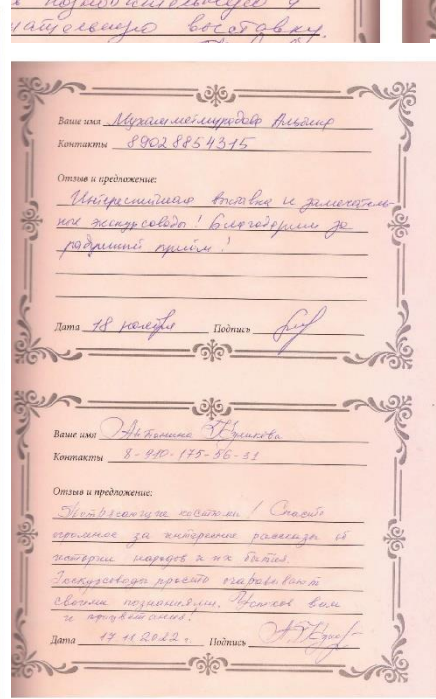 познавательную и
выставку.
Ваше имя Мухамметмуродова Альбина
Контакты 89028854315
Отзыв и предложение:
Интереснейшая выставка и замечатель-
ные экскурсоводы! Благодарим за
радушный приём!
Дата 18 ноября Подпись
Ваше имя Антонина Куликова
Контакты 8-910-175-56-31
Отзыв и предложение:
Потрясающие костюмы! Спасибо
огромное за интересные рассказы об
истории народов и их бытия.
Экскурсоводы просто очаровывают
своими познаниями. Успехов вам
и процветания!
Дата 17.11.2022 г. Подпись